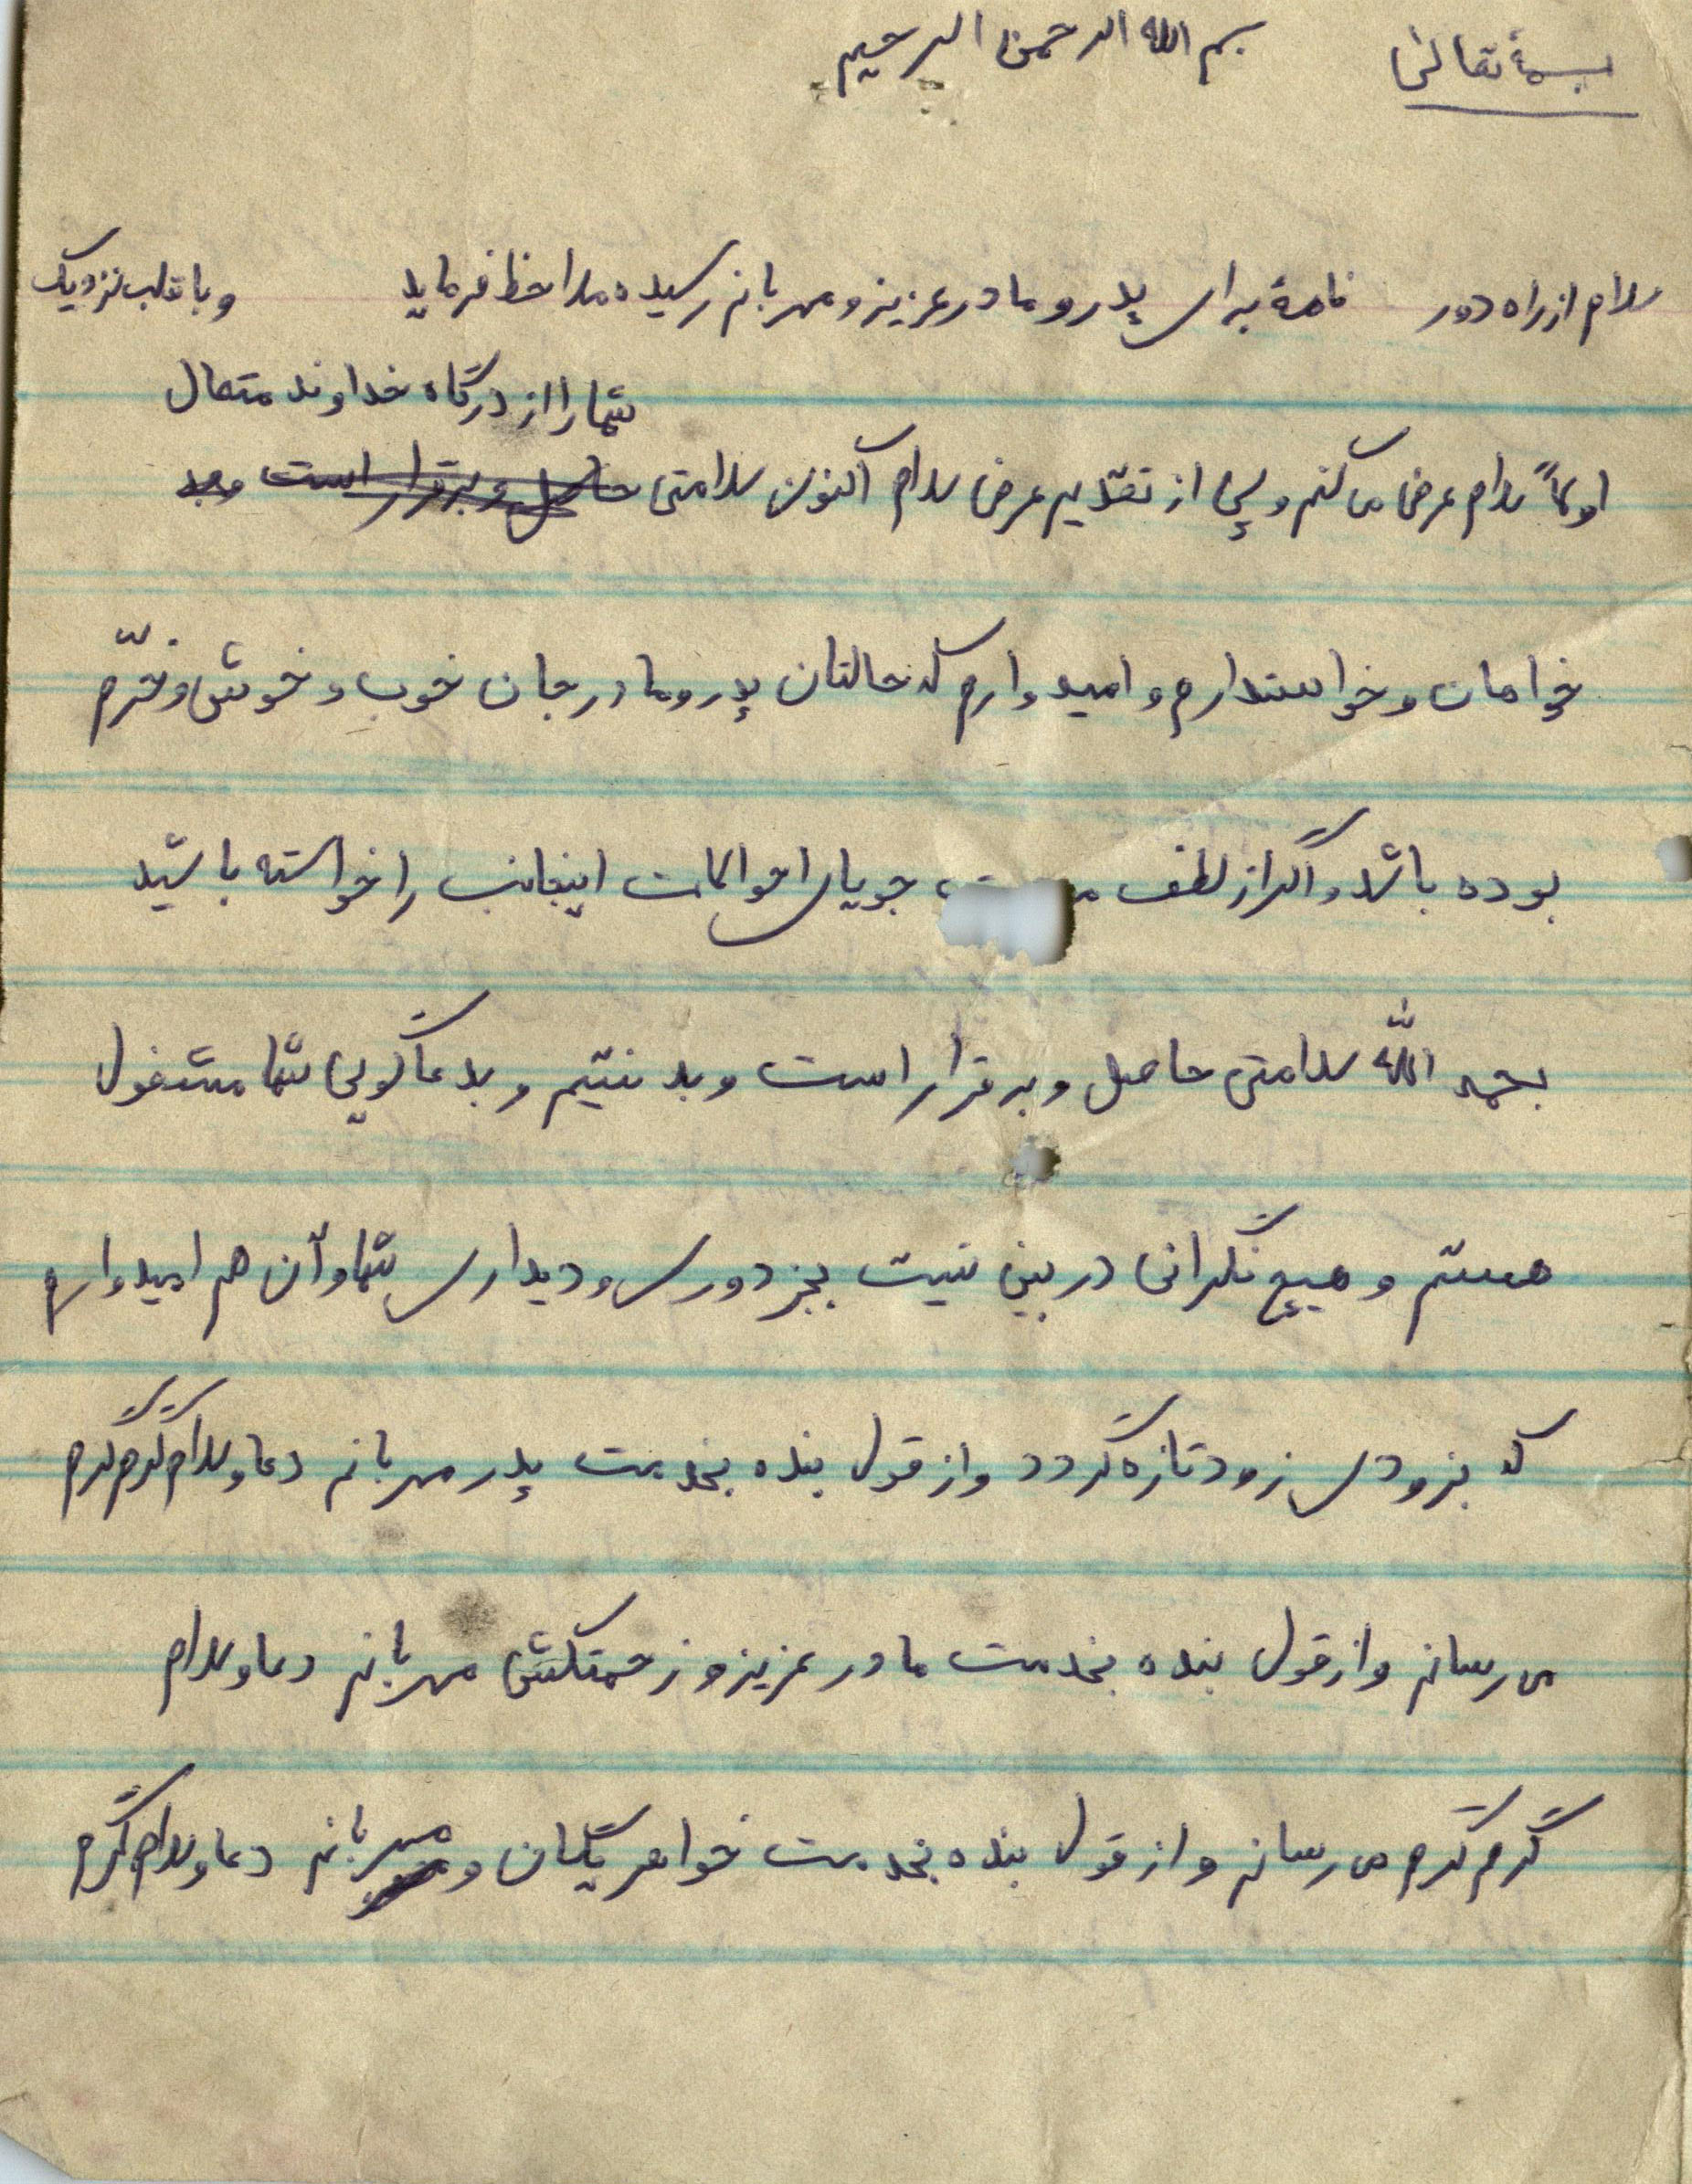 بسمه تعالی    بسم الله الرحمن الرحیم
سلام از راه دور    نامهٔ برای پدر و مادر عزیز و مهربانم رسیده ملاحظ فرماید    و با قلب نزدیک
شما را از درگاه خداوند متعال
اولاً سلام عرض می کنم و پس از تقدیم عرض سلام اکنون سلامتی حاصل و برقرار است
خواهان و خواستدارم و امیدوارم که حالتان پدر و مادر جان خوب و خوش و خرّم
بوده باشد و اگر از لطف جویای احوالات اینجانب را خواسته باشید
بحمد اللّه سلامتی حاصل و برقرار است و بد نیتیم و بدعاگویی شما مشغول
هستم و هیچ نگرانی در بین نیت بجز دوری و دیداری شما و آن هم امیدوارم
که بزودی زود تازه گردد و از قول بنده بخدمت پدر مهربانم دعا و سلام گرم گرم
می رسانم و از قول بنده بخدمت مادر عزیز و زحمتکش مهربانم دعا و سلام
گرم گرم می رسانم و از قول بنده بخدمت خواهر یگان و مهربانم دعا و سلام گرم